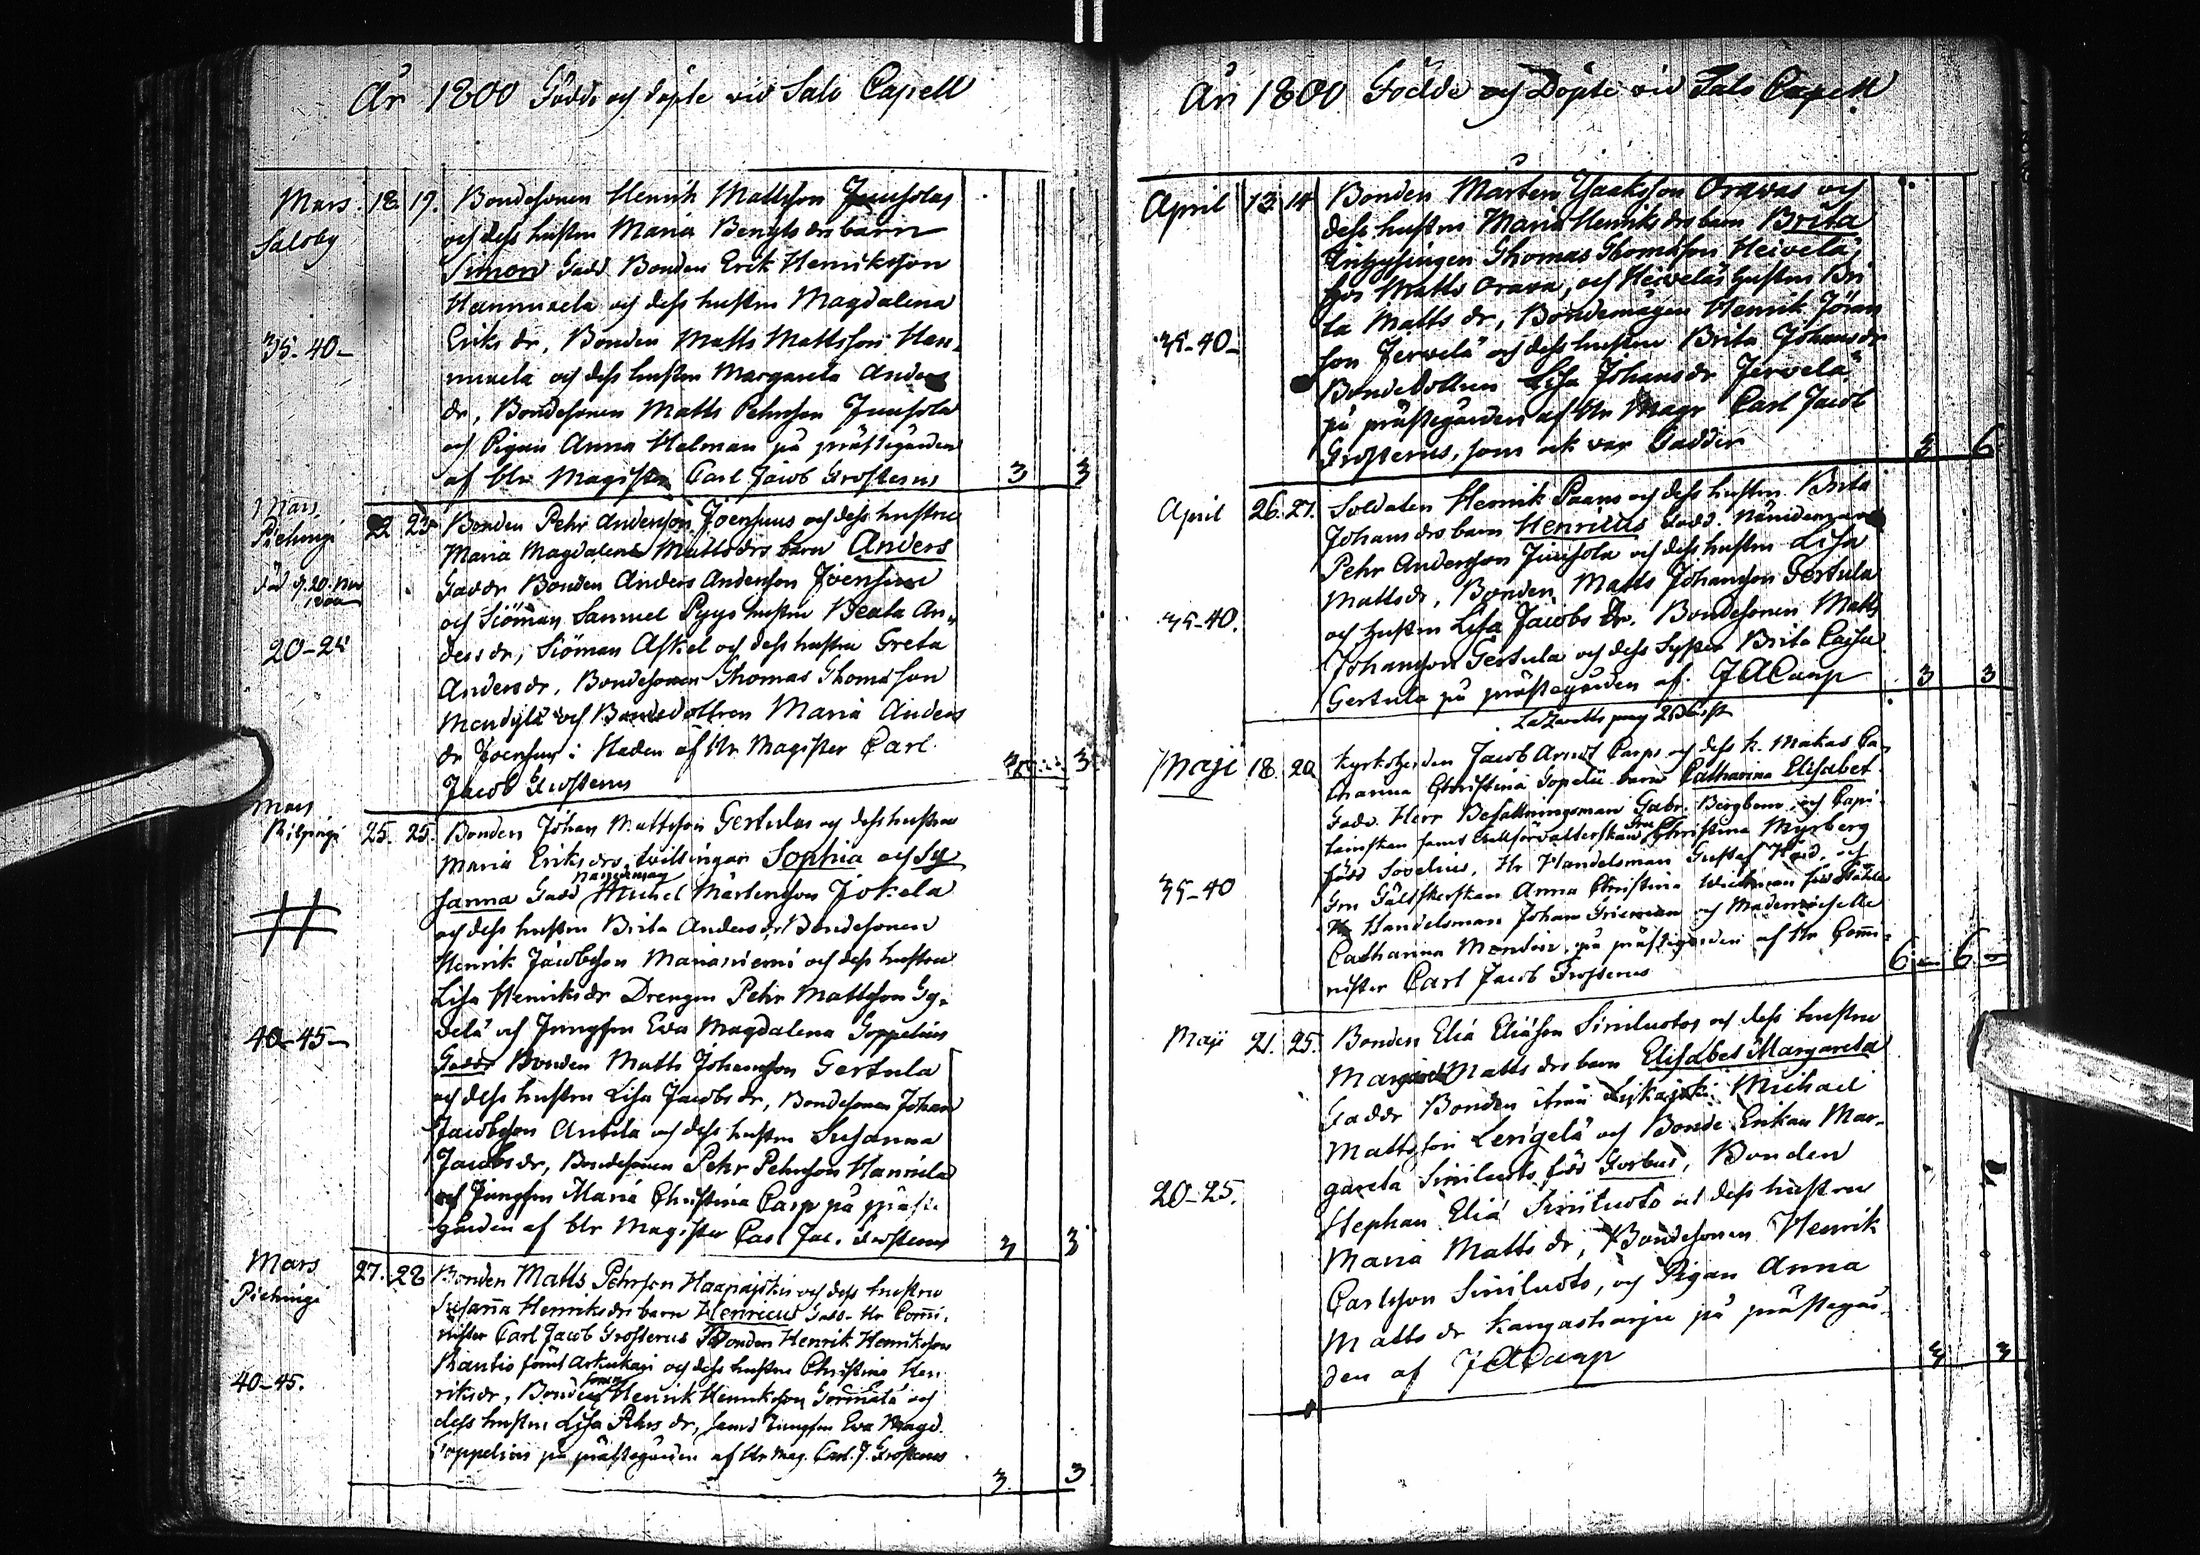 År 1800 Födde och döpte vid Salo Capell
Mars 18. 19. Bondesonen Henrik Mattsson Juusolas
Saloby och dess hustru Maria Bengts drs barn
Simon Fadd. Bonden Erik Henriksson
Hannuxela och dess hustru Magdalena
35-40- Eriks dr, Bonden Matts Mattsson Han-
nuxela och dess hustru Margareta Anders
dr, Bondesonen Matts Pehrsson Juusola
och Pigan Anna Helman på prästegården
af Hr Magister Carl Jacob Frosterus 3 3
Mars 22 23 Bonden Pehr Andersson Joensuus och dess hustru
Piehingi Maria Magdalena Mattsdrs barn Anders
Faddr Bonden Anders Andersson Joensuu
och Siöman Samuel Pyys hustru Beata An-
20-25 ders dr, Siöman Askel och dess hustru Greta
Anders dr, Bondesonen Thomas Thomasson
Mendylä och Bondedottren Maria Anders
dr Joensuu i Staden af Hr Magister Carl
Jacob Frosterus 3
Mars 25. 25. Bonden Johan Mattsson Gertulas och dess hustru
Maria Eriks drs tvillingar Sophia och Su
sanna Fadd Michel Mårtensson Jokela
och dess hustru Brita Anders dr Bondesonen
Henrik Jacobsson Marianiemi och dess hustru
Lisa Henriks dr Drengen Pehr Mattsson Sy-
40-45- velä och Jungfru Eva Magdalena Toppelius
Faddr Bonden Matts Johansson Gertula
och dess hustru Lisa Jacobs dr, Bondesonen Johan
Jacobsson Antila och dess hustru Susanna
Jacobs dr, Bondesonen Pehr Pehrsson Hannila
och Jungfru Maria Christina Carp på präste
gården af Hr Magister Carl Jac. Frosterus 3 3
Mars 27. 28 Bonden Matts Pehrsson Haapajokis och dess hustru
Piehingi Susanna Henriks drs barn Henricus Fadd. Hr Commi-
nister Carl Jacob Frosterus Bonden Henrik Henriksson
Rautio och dess hustru Christina Hen
40-45. riks dr, Bonden sonen Henrik Henriksson och
dess hustru Lisa Pehrs dr, samt Jungfru Eva Magd.
Toppelius på prästegården af Hr Mag. Carl. J. Frosterus
3 3
År 1800 Födde och Döpte vid Salo Capell
April 13. 14 Bonden Mårten Isaksson Oravas och
dess hustru Maria Henriks drs barn Brita
Inhysingen Thomas Thomasson Heivelä
hos Matts Orava, och Heiveläs hustru Bri
ta Matts dr, Bondemågen Henrik Jöran
35-40- son Jervelä och dess hustru Brita Johans dr
Bondedottren Lisa Johans dr Jervelä
på prästegården af Hr Magr Carl Jacob
Frosterus, som ock var Fadder 3 6
April 26. 27. Soldaten Henrik Paans och dess hustru Brita
Johans drs barn Henricus Fadd. Nämndeman
Pehr Andersson Juusola och dess hustru Lisa
Matts dr, Bonden Matts Johansson Gertula
35-40. och hustru Lisa Jacobs dr. Bondesonen Matts
Johansson Gertula och dess Syster Brita Caisa
Gertula på prästegården af. J A Carp 3 3
Maji 18. 20 Kyrkoherden Jacob Arndt Carps och dess k. Makas Ca-
tharina Christina Topelii barn Catharina Elisabet
Fadd. Herr Befallningsman Gabr. Bergbom och Capi-
tainskan samt Tullförvalterskan Fru Christina Myrberg
född Sovelius, Hr Handelsman Gustaf och
35-40 Fru Fältskerskan Anna Christina
Hr Handelsman Johan Frieman och Mademoiselle
Catharina på prästegården af Hr Commi-
nister Carl Jacob Frosterus 6 6
Maji 21. 25. Bonden Eliä Eliäson Siniluotos och dess hustru
Margareta Matts drs barn Elisabet Margareta
Faddr Bonden ifrån Michael
Mattsson Lerigelä och Bonde Enkan Mar-
gareta Siniluoto född Forbus, Bonden
20-25. Stephan Eliä Siniluoto och dess hustru
Maria Matts dr, Bondesonen Henrik
Carlsson Siniluoto, och Pigan Anna
Matts dr Kangasharju på prästegår-
den af J A Carp 3 3